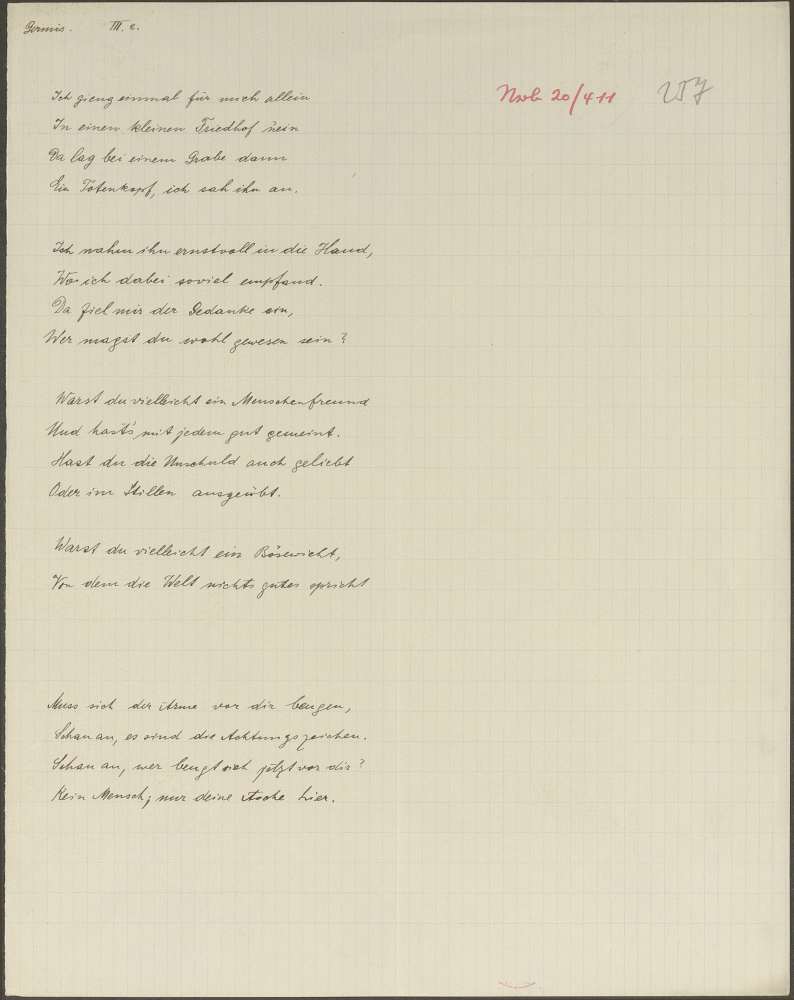 Germis. III. c.
Nrb 20/4 11
Ich gieng einmal für mich allein
In einen kleinen Friedhof 'nein
Da lag bei einem Grabe dann
Ein Totenkopf, ich sah ihn an.
Ich nahm ihn ernstvoll in die Hand,
Wo ich dabei soviel empfand.
Da fiel mir der Gedanke ein,
Wer magst du wohl gewesen sein?
Warst du vielleicht ein Menschenfreund
Und hast's mit jedem gut gemeint.
Hast du die Unschuld auch geliebt
Oder im Stillen ausgeübt.
Warst du vielleicht ein Bösewicht,
Von dem die Welt nichts gutes spricht
Muss sich der Arme vor dir beugen,
Schau an, es sind die Achtungszeichen.
Schau an, wer beugt sich jetzt vor dir?
Kein Mensch; nur deine Asche hier.